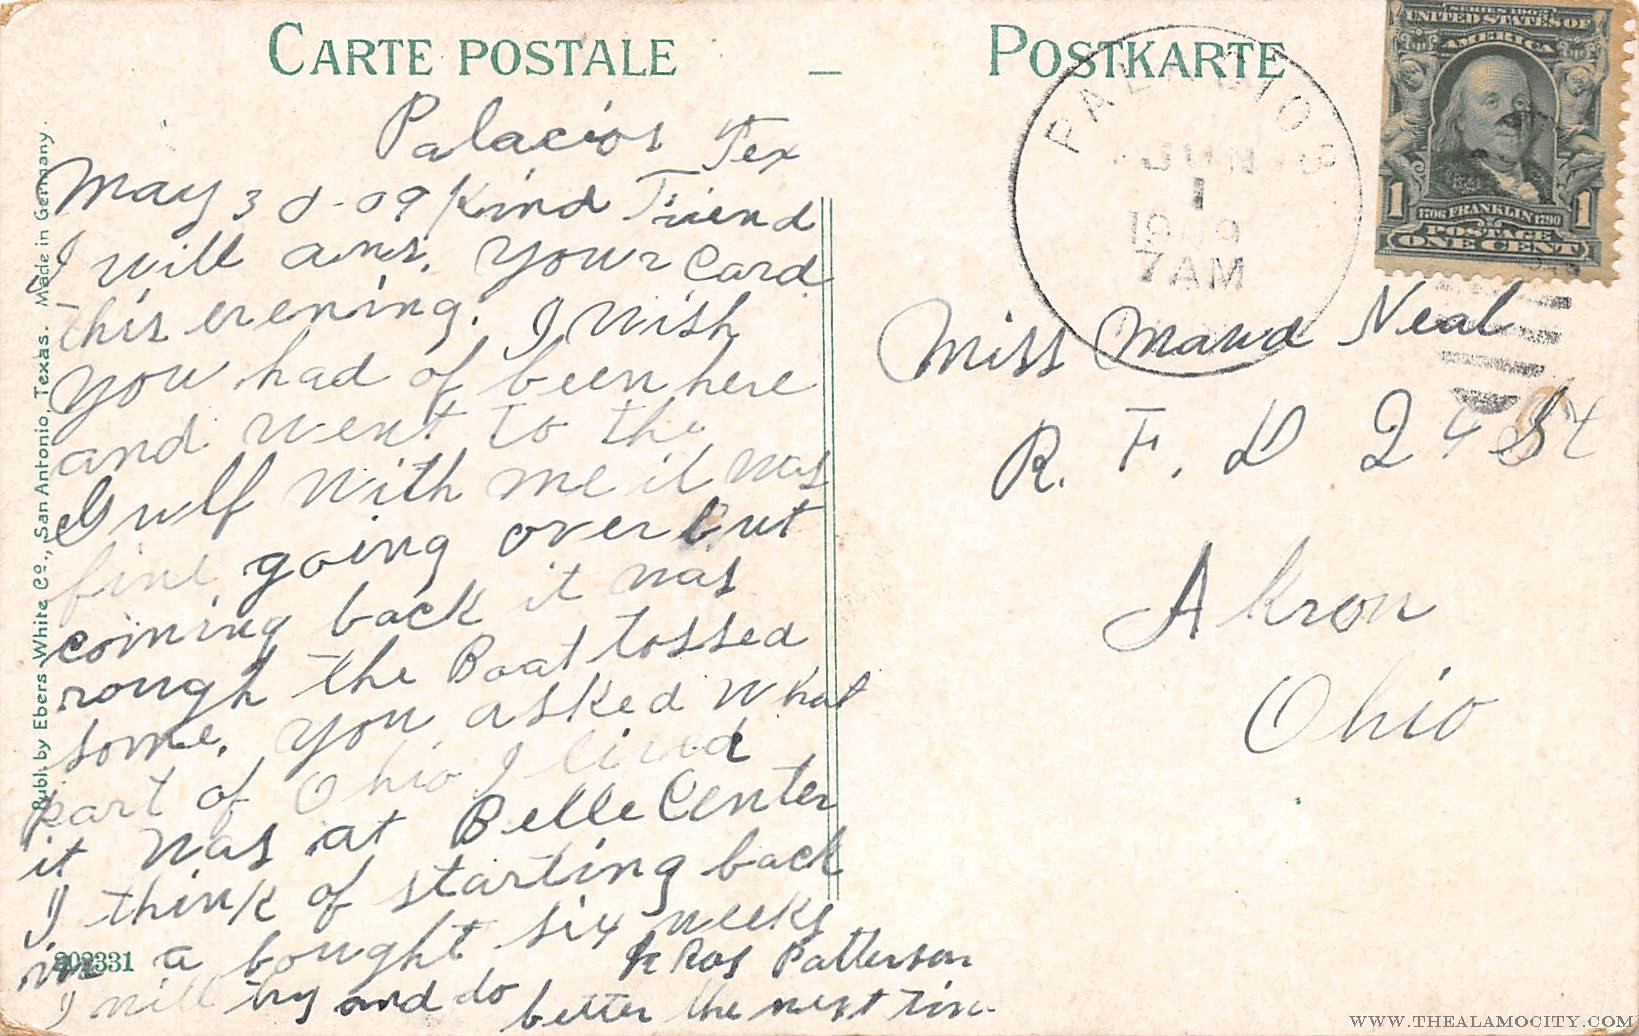 CARTE POSTALE — POSTKARTE
Publ. by Ebers-White Co., San Antonio, Texas. Made in Germany.
Palacios Tex
May 30-09 Kind Friend
I will ans. your card
this evening. I wish
you had of been here
and went to the
Gulf with me it was
fine going over but
coming back it was
rough the Boat tossed
some. you asked what
part of Ohio I lived
it was at Belle Center
I think of starting back
in a bought six weeks
202331
Ros Patterson
I will try and do better the next tim
PALACIOS
JUN
1
1909
7 AM
SERIES 1902
UNITED STATES OF
AMERICA
1 1706 FRANKLIN 1790 1
POSTAGE
ONE CENT
Miss Maud Neal
R. F. D 24 St
Akron
Ohio
WWW.THEALAMOCITY.COM